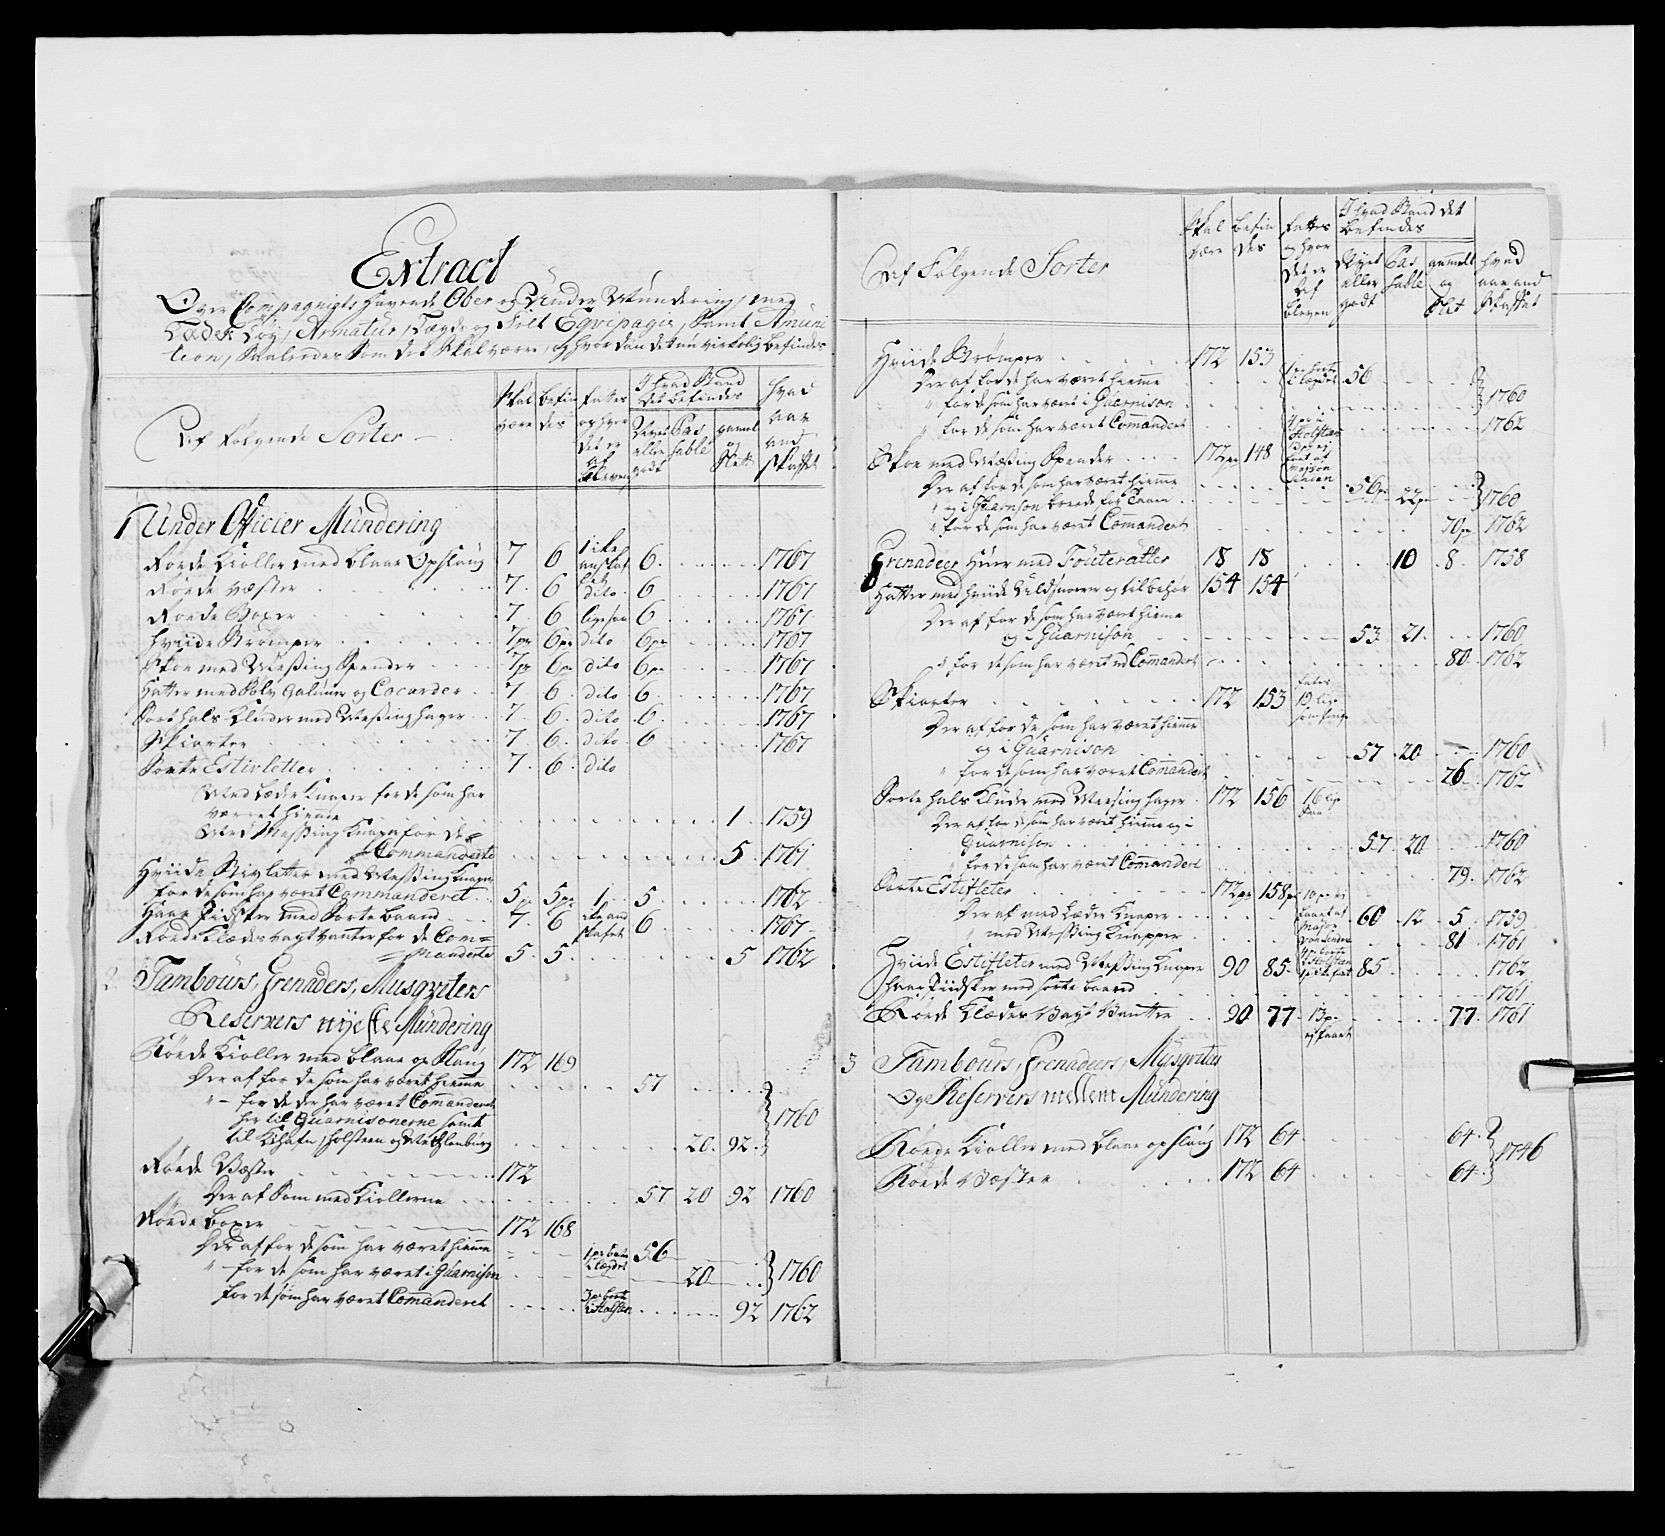 Extract
Over Compagniets havende Ober og Under Mundering, med
Læder Tøy, Armatur, og Felt Eqvipagie, samt Amuni
tion, saaledes som det skal være, og hvordan det nu virkelig befindes
Af følgende Sorter
skal være
befindes
fattes og hvor det er af bleven
I hvad stand det befindes
Nyet eller godt
Passable
gammelt og slet
hvad aar anskaffet
1 Under Officier Mundering
Røde Kioller med blaae Opslaug 7 6 1 ike anskaf 6 1767
Røde væster 7 6 dito 6 1767
Røde Boxer 7 6 ligesaa 6 1767
Hviide Strømper 7pr 6pr dito 6pr 1767
Skoe med Messing Spender 7pr 6pr dito 6pr 1767
Hatter med Sølv Galuner og Cocarder 7 6 dito 6 1767
Sort hals Kluder med Messing hager 7 6 dito 6 1767
Skiorter 7 6 dito 6 1767
Sorte Estivletter 7 6 dito
Med Læder Knaper for de som har
været hieme 1 1759
Med Messing Knaper for de
Commanderte 5 1761
Hviide Stivletter med Messing Knaper
for de som har været Commanderet 5pr 5pr 1 5 1762
Haar Pidsker med Sorte baand 7 6 ike anskafet 6 1767
Røde Klædes vagt vanter for de Com=
manderte 5 5 5 1762
2 Tambours, Grenaders, Musqveters
Reservers nyeste Mundering
Røde Kioller med blaae op Slaug 172 169
Der af for de som har været hieme 57
" for de der har været Commandert
her til Guarnisonerne samt
til Kihafn, Holsteen og Mechlenburg 20 92 1760
Røde Væster 172
Der af Som med Kiollerne 57 20 92 1760
Røde boxer 172 168
Der af for de som har været hieme 1pr 56
" for de som har været i Guarnison 20 1760
for de som har været Comanderet 3pr borte i Holsten 92 1762
Af Følgende Sorter
skal være
befindes
fattes og hvor det er af bleven
I hvad Stand det befindes
Nyet eller godt
Passable
gammelt og slet
hvad aar anskaffet
Hviide Strømper 172 153
Der af for de har været hieme 56
" for de som har været i Guarnison 1760
" for de som har været Commandert 1762
Skoe med Messing Spender 172pr 148
Der af for de som har været hieme 56pr 22pr
" og i Guarnison 1760
" for de som har været Comandert 70pr 1762
Grenadeer Huer med Fouteratter 18 18 10 8 1758
Hatter med hviide Uldsnorer og tilbehør 154 154
Der af for de som har været hieme
og i Guarnison 53 21 1760
" for de som har været ud Comandert 80 1762
Skiorter 172 153 fattes 19
Der af for de som har været hieme
og i Guarnison 57 20 1760
" for de som har været Comandert 76 1762
Sorte hals Kluder med Messing hager 172 156 16
Der af for de som har været hieme og i
Guarnison 57 20 1760
" for de som har været Comandert 79 1762
Sorte Estifleter 172pr 158pr
Der af med Læder Knaper 60 12 5 1759
" med Messing Knapper 81 1761
Hviide Estifleter med Messing Knaper 90 85 85 1762
Haar Piidsker med sorte baand 1761
Røde Klædes Vagt Vanter 90 77 13pr 77 1761
3 Tambours, Grenadeers, Musqveters
Og Reservers mellem Mundering
Røde Kioller med blaae opslaug 172 64 64
Røde Væster 172 64 64 1746